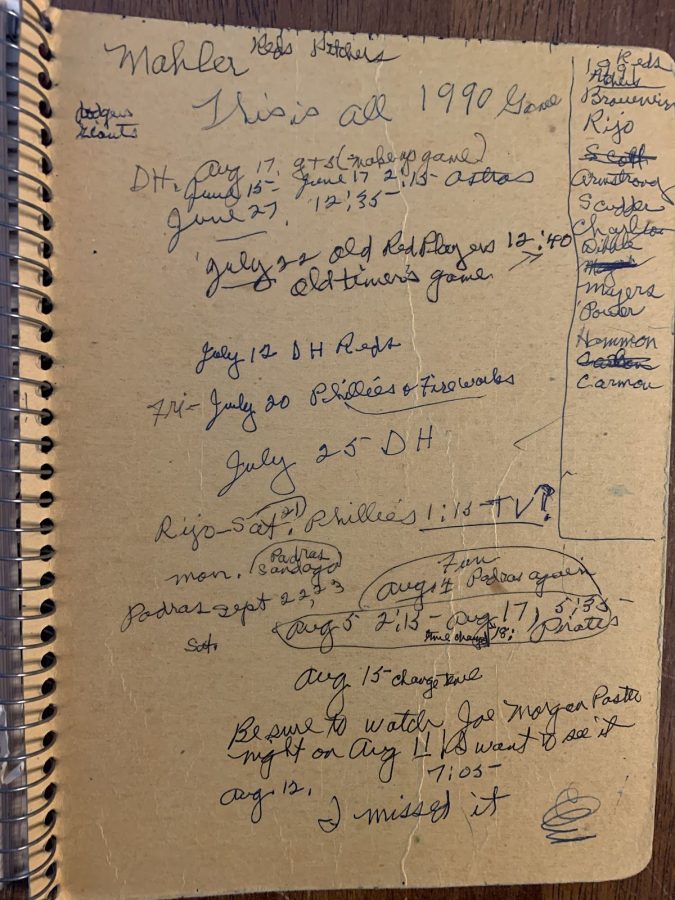 Mahler Reds Pitchers
This is all 1990 Game
Dodgers
Giants
DH. Aug 17, 9+5 (-makeup game)
June 15- June 17 2:15- Astros
June 27, 12:35-
July 22 Old Red Players 12:40
old timer's game
July 12 DH Reds
Fri- July 20 Phillies & Fireworks
July 25 DH
Rijo-Sat. 21 Phillies 1:15-TV?
mon. Padras
Sandago
Padras Sept 22, 23
Sat.
Aug 4 Padras again
Aug 5 2:15- Aug 17, 5:35-
time change Pirates
Aug 15 change time
Be sure to watch Joe Morgan Poster
night on Aug 11! I want to see it
7:05-
Aug. 12.
I missed it
Reds
Browning
Rijo
Scott
Armstrong
Scudder
Charlton
Dibble
Myers
Power
Hammon
Carmon